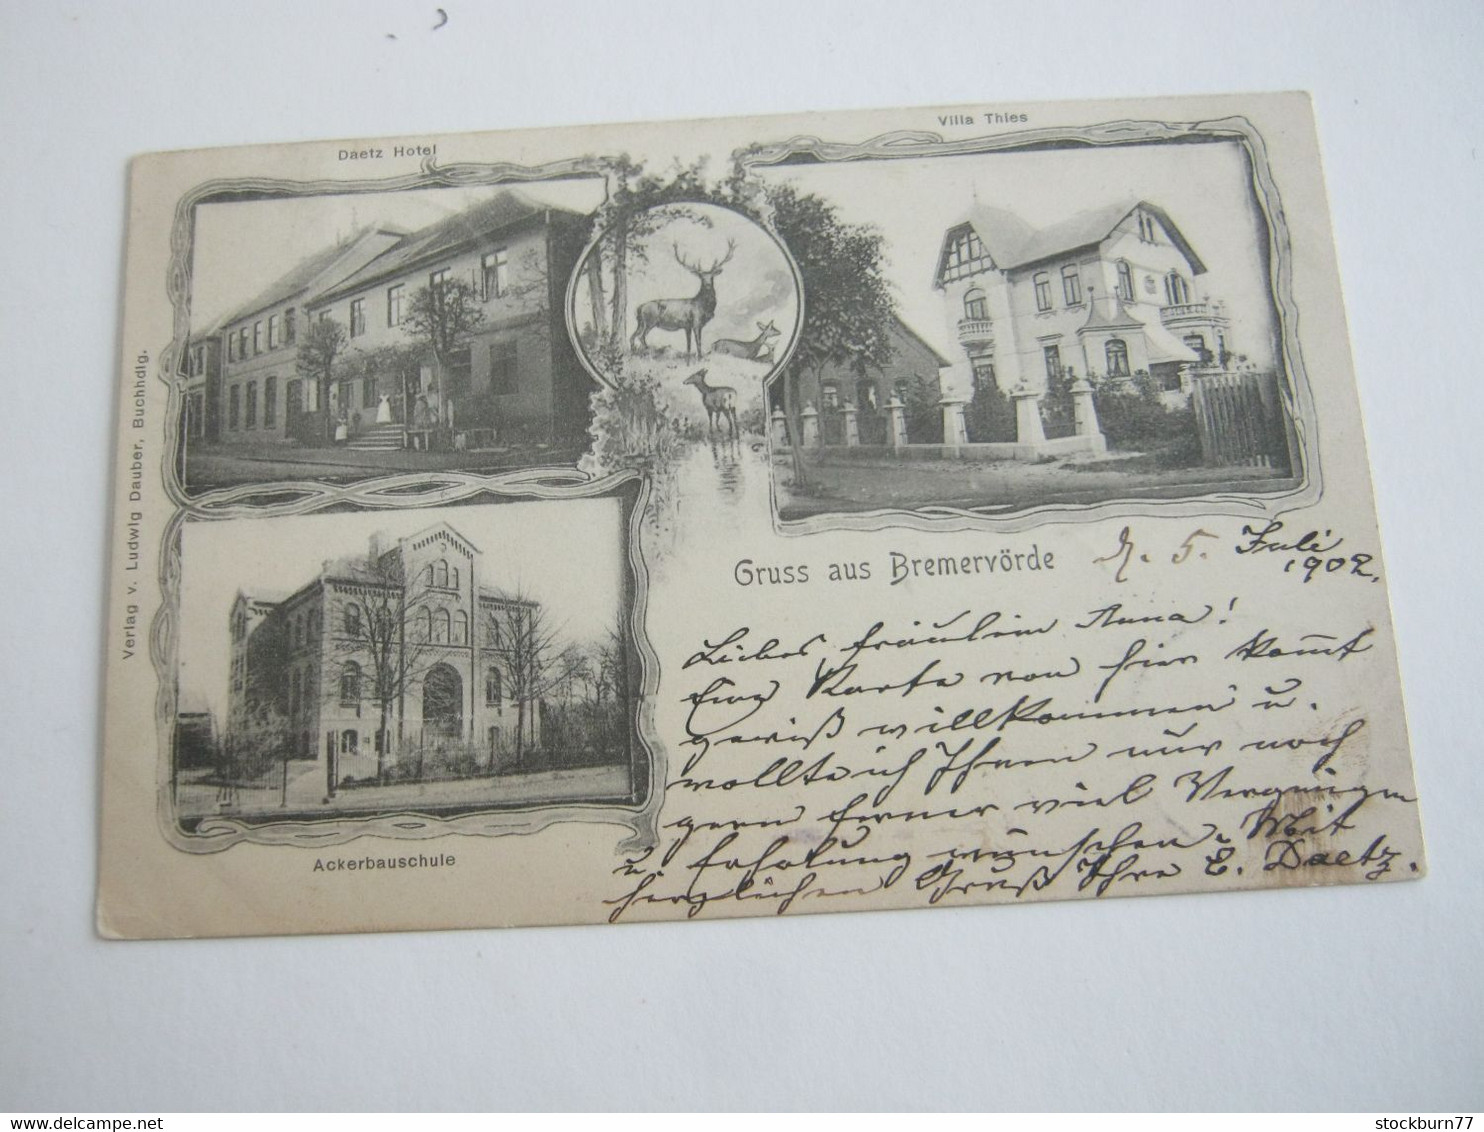 Daetz Hotel
Villa Thies
Verlag v. Ludwig Dauber, Buchhdlg.
Ackerbauschule
Gruss aus Bremervörde
d. 5. Juli
1902.
Liebes Fräulein Anna!
Eine Karte von hier kommt
gewiß willkommen u.
wollte ich Ihnen nur noch
gern ferner viel Vergnügen
u. Erholung wünschen. Mit
herzlichen Gruß Ihre E. Daetz.
www.delcampe.net
stockburn77